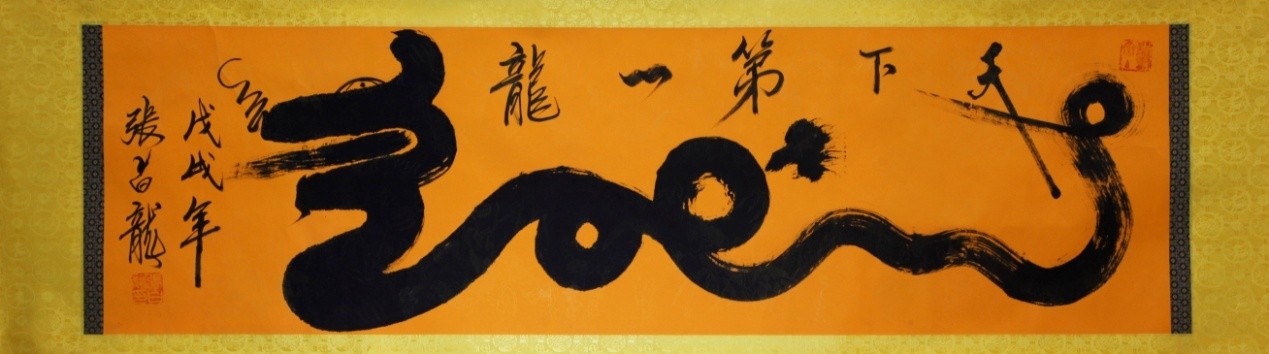 天下第一龍
戊戌年
張昌龍